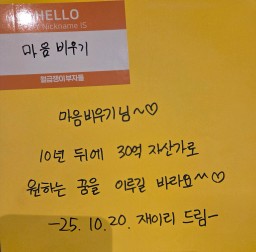 HELLO
Nickname IS
마음 비우기
월급쟁이부자들
마음비우기님~♡
10년 뒤에 30억 자산가로
원하는 꿈을 이루길 바라요^^♡
-25. 10. 20. 재이리 드림-